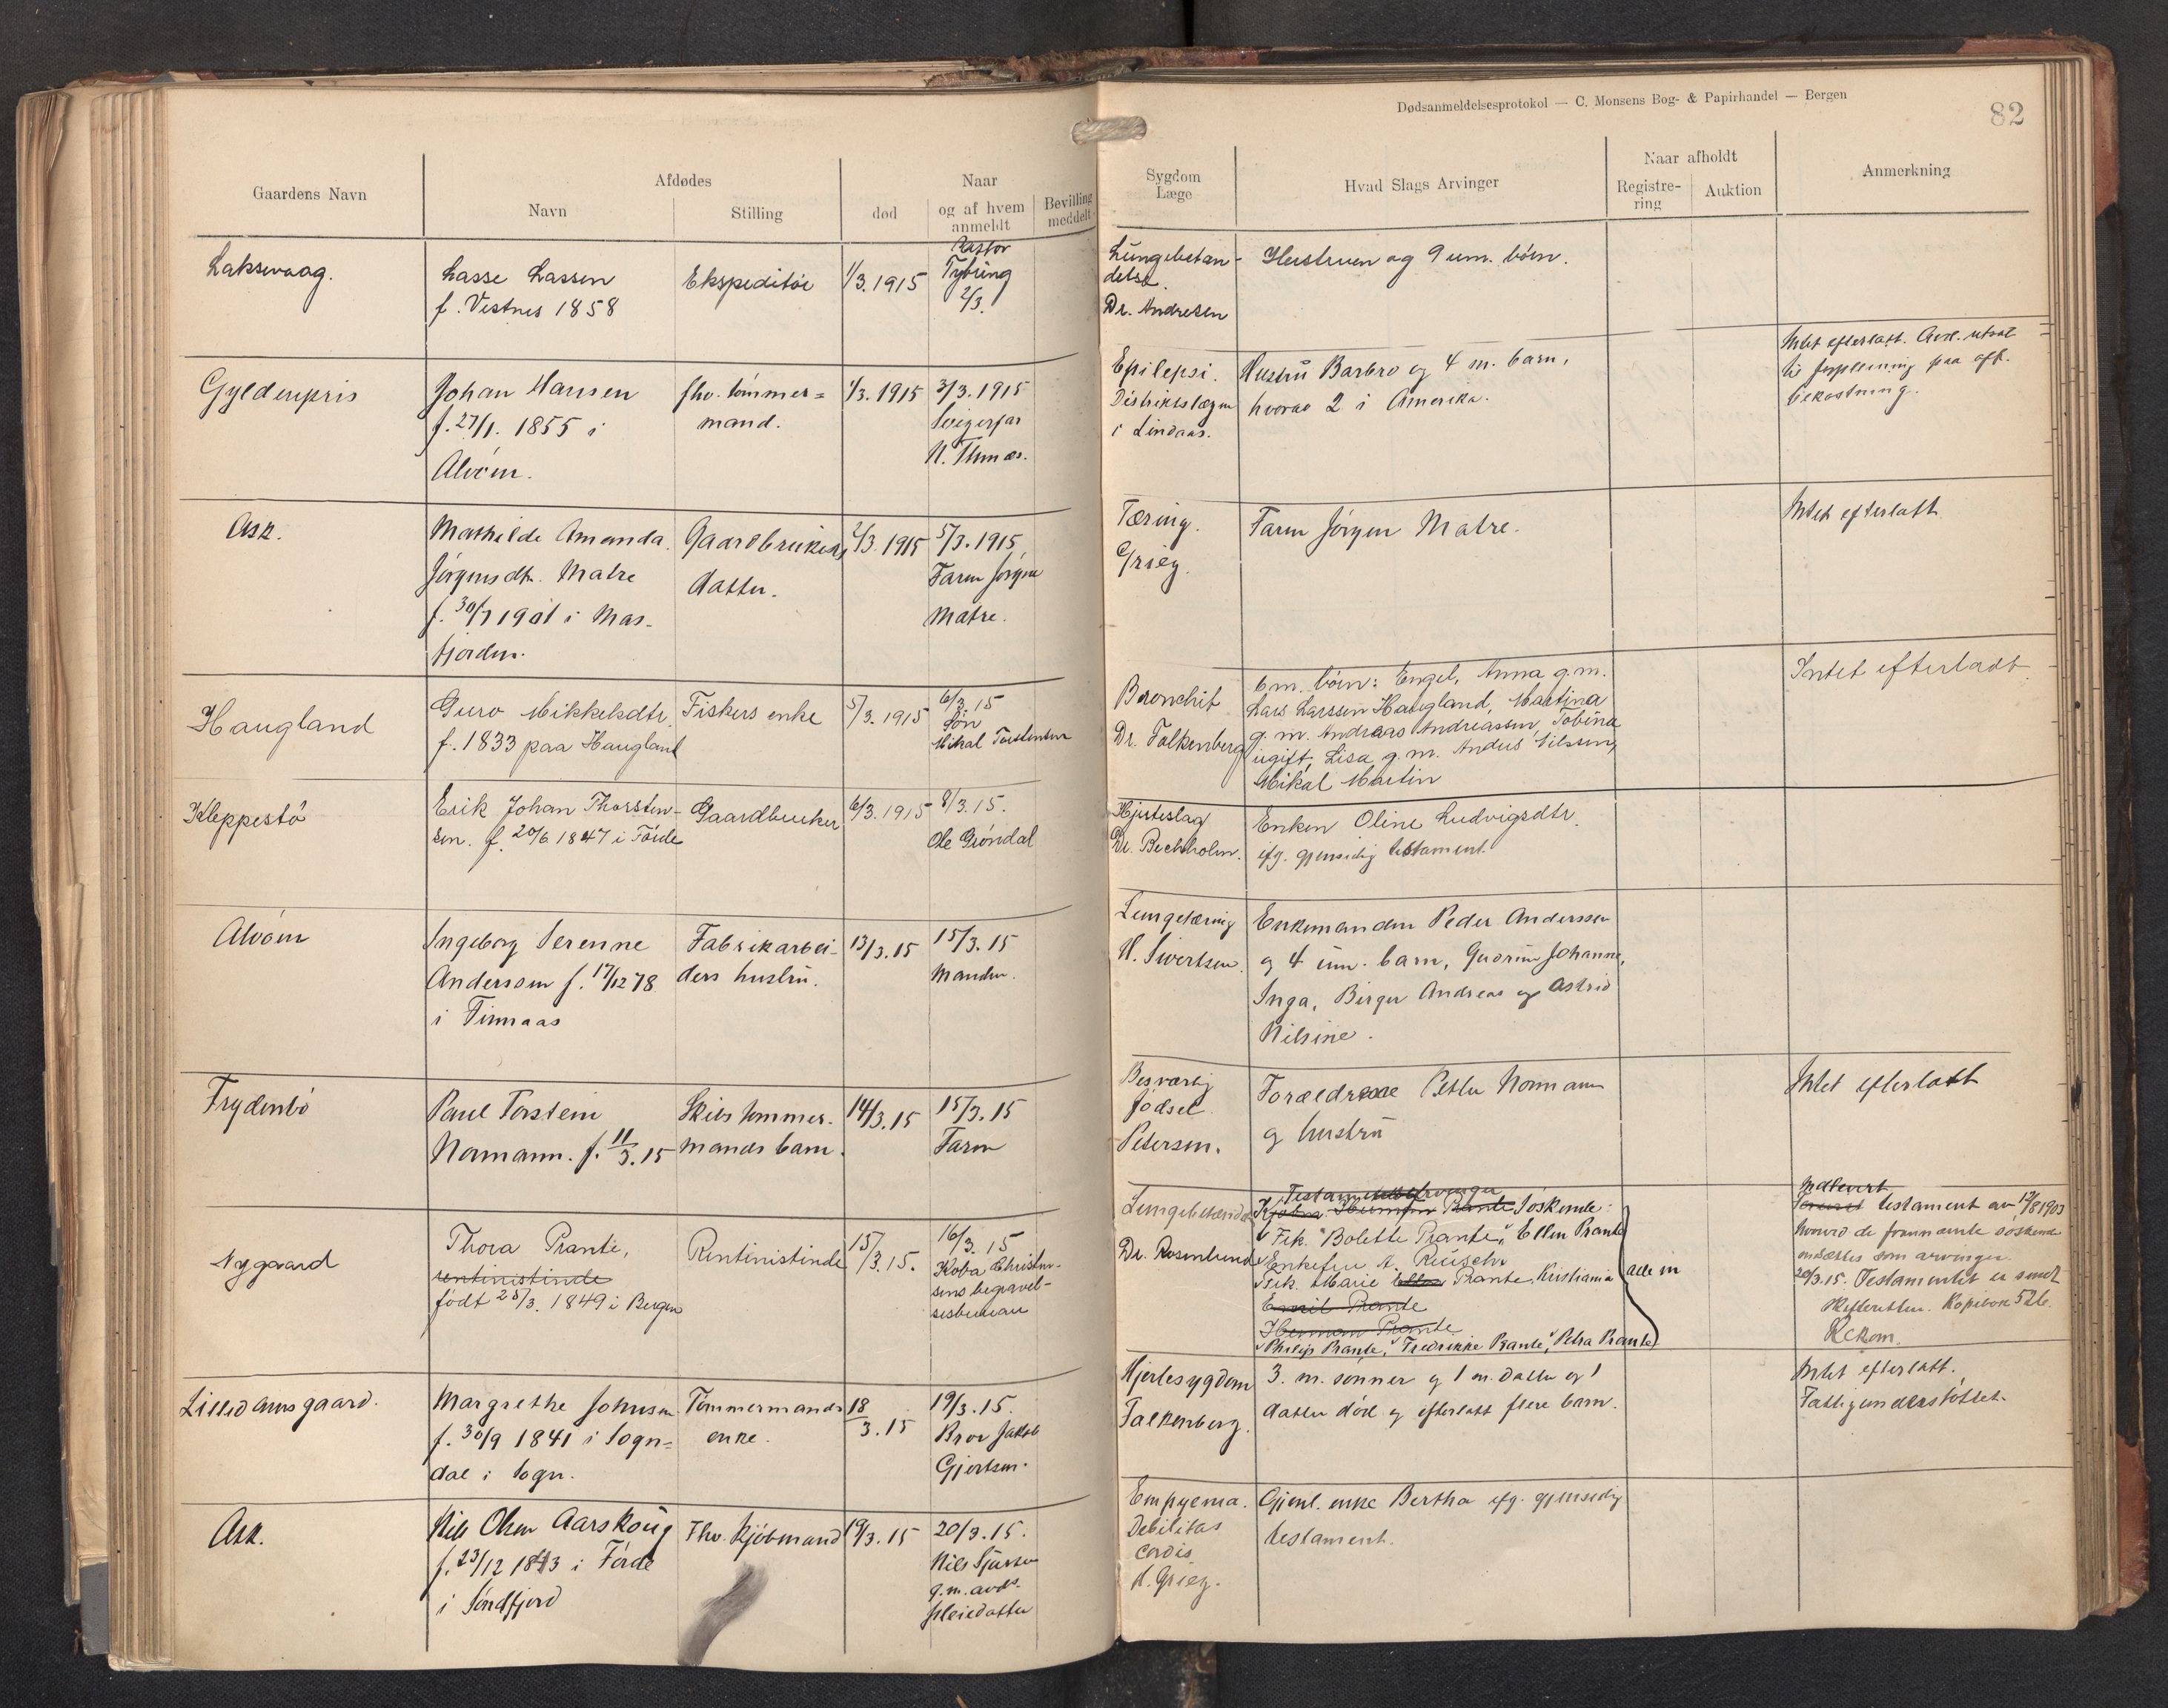 Dødsanmeldelsesprotokol — C. Monsens Bog- & Papirhandel — Bergen
82
Gaardens Navn
Afdødes
Navn
Stilling
Naar
død
og af hvem
anmeldt
Bevilling
meddelt
Sygdom
Læge
Hvad Slags Arvinger
Naar afholdt
Registre-
ring
Auktion
Anmerkning
Laksevaag.
Lasse Lassen
f. Vestnes 1858
Ekspeditør
1/3. 1915
Pastor
Tybring
2/3.
Lungebetæn-
delse.
Dr. Andresen
Hustruen og 9 um. børn.
Gyldenpris
Johan Hansen
f. 27/1. 1855 i
Alvøen.
fhv. tømmer=
mand.
1/3. 1915
3/3. 1915
Svigerfar
Epilepsi.
Distriktslægen
i Lindaas.
Hustru Barbro og 4 m. barn,
hvorav 2 i Amerika.
Intet efterlatt.
til forpleining paa
bekostning.
Ask.
Mathilde Amanda
Jørgensdtr. Matre
f. 30/7 1901 i Mas-
fjorden.
Gaardbrukers
datter.
2/3. 1915
5/3. 1915
Faren Jørgen
Matre.
Tæring.
Grieg.
Faren Jørgen Matre.
Intet efterlatt
Haugland
Guro Mikkelsdtr.
f. 1833 paa Haugland
Fiskers enke
5/3. 1915
6/3. 15
Søn
Mikal Torstensen
Bronchit
Dr. Falkenberg
6 m. børn: Engel, Anna g.m.
Lars Larssen Haugland, Martina
g. m. Andreas Andreassen, Tobina
ugift, Lisa g. m. Anders Nilssen,
Mikal Martin
Intet efterladt.
Kleppestø
Erik Johan Thorsten-
sen. f. 20/6 1847 i Førde
Gaardbruker
6/3. 1915
8/3. 15.
Ole Grøndal
Hjerteslag
Dr. Bechholm.
Enken Oline Ludvigsdtr.
ifg. gjensidig testament.
Alvøen
Ingeborg Serenne
Anderssen f. 17/12 78
i Finnaas
Fabrikarbei-
ders hustru.
13/3. 15
15/3. 15
Manden.
Lungetæring
N. Sivertsen.
Enkemanden Peder Anderssen
og 4 um. barn, Gudrun Johanne,
Inga, Birger Andreas og Astrid
Nilsine.
Frydenbø
Paul Torstein
Normann. f. 11/3. 15
Skibstømmer-
mands barn.
14/3. 15
15/3. 15
Faren
Besværlig
fødsel.
Petersen.
Forældrene Petter Normann
og hustru
Intet efterlatt
Nygaard
Thora Prante,
rentinistinde
født 25/3. 1849 i Bergen
Rentinistinde
15/3. 15.
16/3. 15
Koba Christen-
sens begravel-
sesbureau
Dr. Rosenlund
Testamentsarvinger
Søskende:
Frk. Bolette Prante, Ellen Prante
Enkefru
Frk. Marie Prante, Kristiania
Emil Prante
Herman Prante
Philip Prante, Fredrikke Prante, Petra Prante
Indlevert
testament av 12/8 1903
hvorved de frannævnte søskende
indsættes som arvinger.
20/3. 15. Testamentet er sendt
skifteretten. Kopibok 526.
Lillidamsgaard.
Margrethe Johnsen
f. 30/9 1841 i Sogn=
dal i Sogn.
Tømmermands
enke.
18/3. 15
19/3. 15.
Bror Jakob
Gjertsen.
Hjertesygdom
Falkenberg.
3. m. sønner og 1 m. datter og 1
datter død og efterlatt flere barn.
Intet efterlatt.
Fattigunderstøttet.
Ask.
Nils Olsen Aarskoug
f. 23/12 1843 i Førde
i Søndfjord
Fhv. kjøbmand
19/3. 15
20/3. 15.
Nils Sjursen
g. m. avds.
pleiedatter
Empyema.
Debilitas
cordis
N. Grieg.
Gjenl. enke Bertha ifg. gjensidig
testament.